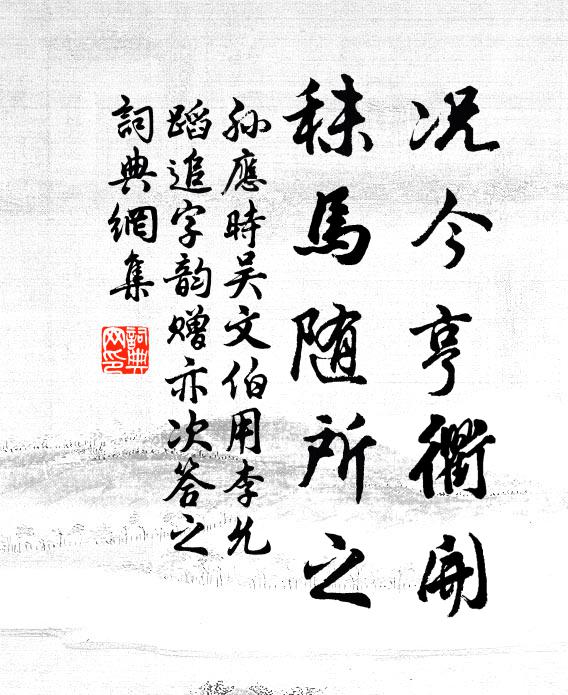 况今亨衢開
秣馬随所之
孫應時吴文伯用李允
蹈追字韵赠亦次答之
詞典網集
詞典
网印